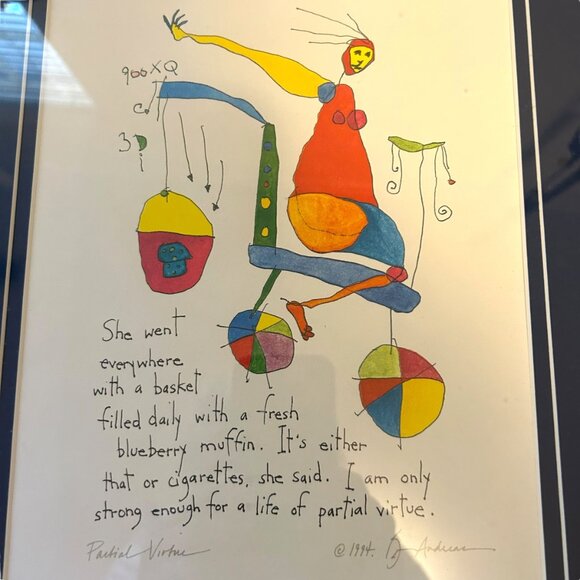 900 X Q
3
She went
everywhere
with a basket
filled daily with a fresh
blueberry muffin. It's either
that or cigarettes, she said. I am only
strong enough for a life of partial virtue.
Partial Virtue
© 1994. Andreas